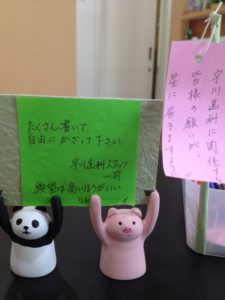 たくさん書いて、
自由にかざって下さい
早川歯科スタッフ
一同
願望は高いほうがいい
早川歯科に関係する
皆様の願いが
星に届きますように